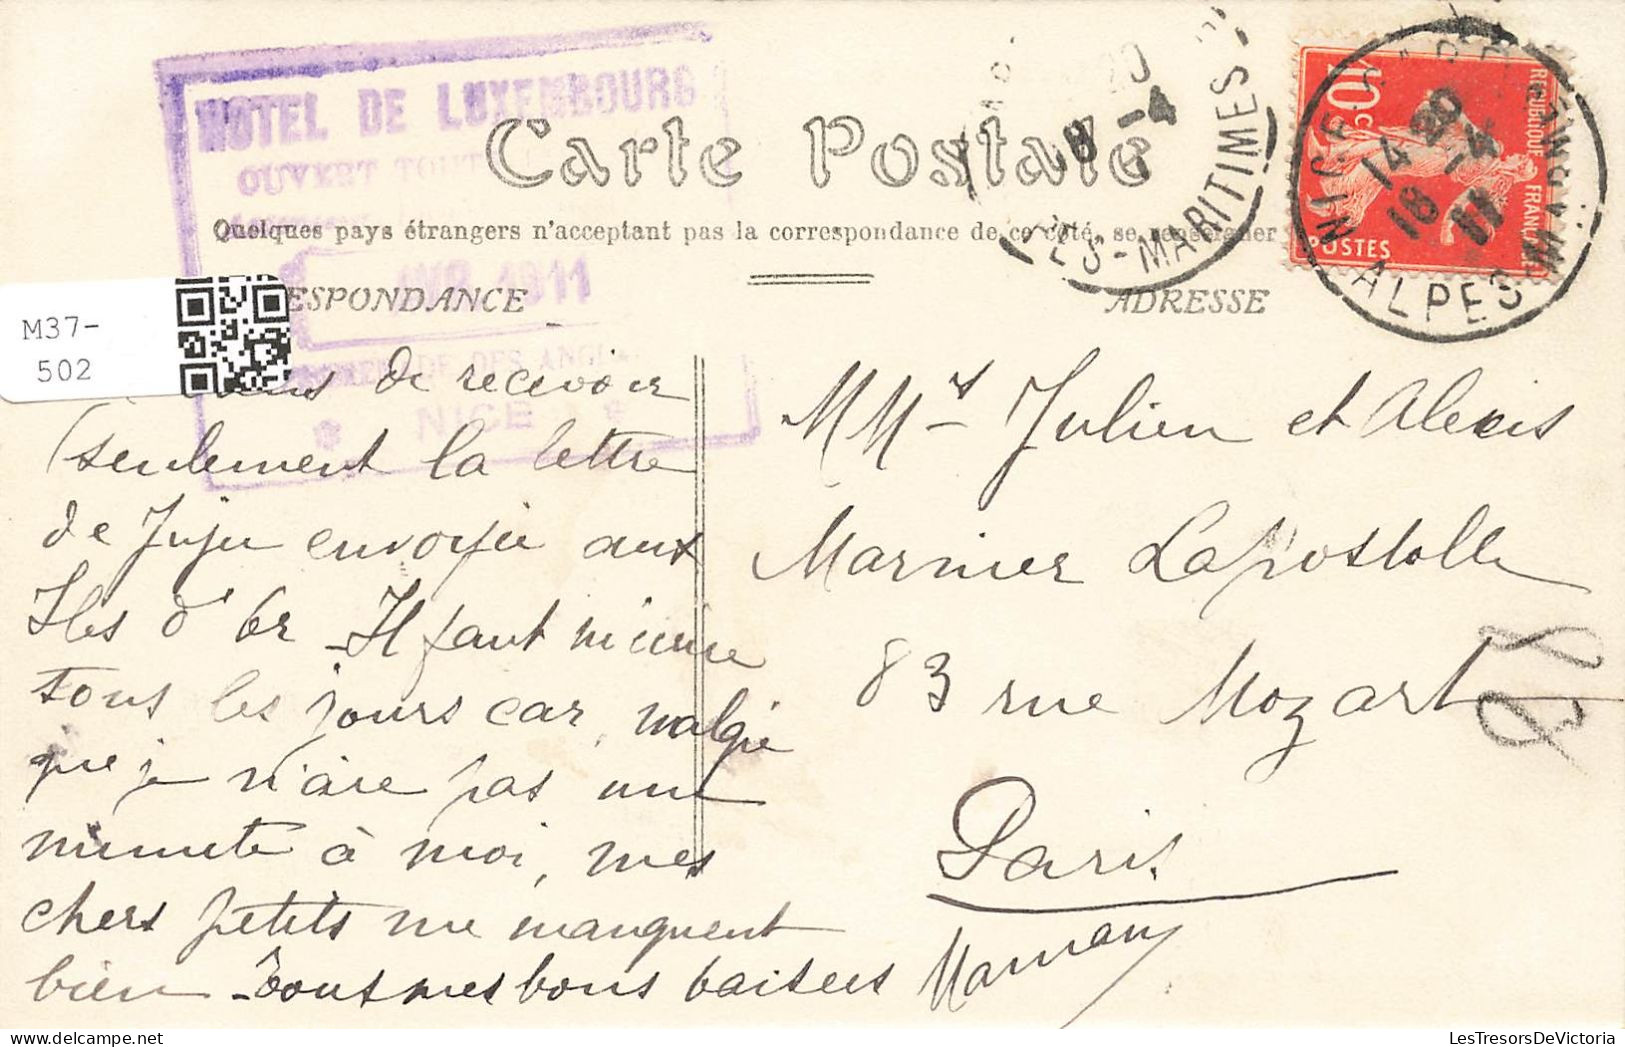 HOTEL DE LUXEMBOURG
OUVERT TOUT
AVR 1911
PROMENADE DES ANGLAIS
* NICE *
Carte Postale
Quelques pays étrangers n'acceptant pas la correspondance de ce côté, se renseigner
ESPONDANCE
ADRESSE
8 -4
ALPES-MARITIMES
NICE
14 20
18 -4
11
ALPES MMES
REPUBLIQUE FRANÇAISE
10 c
POSTES
M37-
502
viens de recevoir
seulement la lettre
de Juju envoyée aux
Iles d'Or - Il faut m'écrire
tous les jours car, malgré
que je n'aie pas une
minute à moi, mes
chers petits me manquent
bien - Tous mes bons baisers
Maman
MMrs Julien et Alexis
Marnier Lapostolle
83 rue Mozart
Paris
28
LesTresorsDeVictoria.com